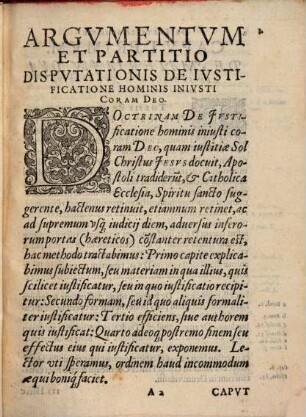 ARGVMENTVM
ET PARTITIO
DISPVTATIONIS DE IVSTI-
FICATIONE HOMINIS INIVSTI
CORAM DEO.
DOCTRINAM DE JVSTI-
ficatione hominis iniusti co-
ram DEO, quam iustitiæ Sol
Christus JESVS docuit, Apo-
stoli tradiderũt, & Catholica
Ecclesia, Spiritu sancto sug-
gerente, hactenus retinuit, etiamnum retinet, ac
ad supremum vsq; iudicij diem, aduersus infero-
rum portas (hæreticos) cõstanter retentura est,
hac methodo tractabimus: Primo capite explica-
bimus subiectum, seu materiam in qua illius, quis
scilicet iustificatur, seu in quo iustificatio recipi-
tur: Secundo formam, seu id quo aliquis formali-
ter iustificatur: Tertio efficiens, siue authorem
quis iustificat: Quarto adeoq́ postremo finem seu
effectus eius qui iustificatur, exponemus. Le-
ctor vti speramus, ordinem haud incommodum
æqui boniq́ faciet.
A 2 CAPVT